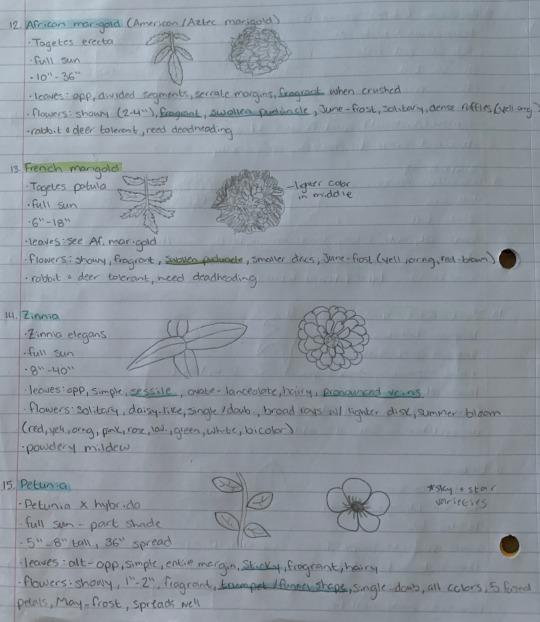 12. African marigold (American/Aztec marigold)
· Tagetes erecta
· full sun
· 10"-36"
· leaves: opp, divided segments, serrate margins, fragrant when crushed
· flowers: showy (2-4"), fragrant, swollen peduncle, June-frost, solitary, dense ruffles (yell, orng)
· rabbit + deer tolerent, need deadheading
13. French marigold
· Tagetes patula
· full sun
· 6"-18"
- lighter color
in middle
· leaves: see Af. marigold
· flowers: showy, fragrant, swollen peduncle, smaller discs, June-frost (yell, orng, red-brown)
· rabbit + deer tolerant, need deadheading
14. Zinnia
· Zinnia elegans
· full sun
· 8"-40"
· leaves: opp, simple, sessile, ovate-lanceolate, hairy, pronounced veins
· flowers: solitary, daisy-like, single/doub, broad rays w/ lighter disk, summer bloom
(red, yell, orng, pink, rose, lav, green, white, bicolor)
· powdery mildew
15. Petunia
· Petunia x hybrida
· full sun - part shade
· 5"-8" tall, 36" spread
*sky + star
varieties
· leaves: alt-opp, simple, entire margin, sticky, fragrant, hairy
· flowers: showy, 1"-2", fragrant, trumpet/funnel shape, single-doub, all colors, 5 fused
petals, May-frost, spreads well